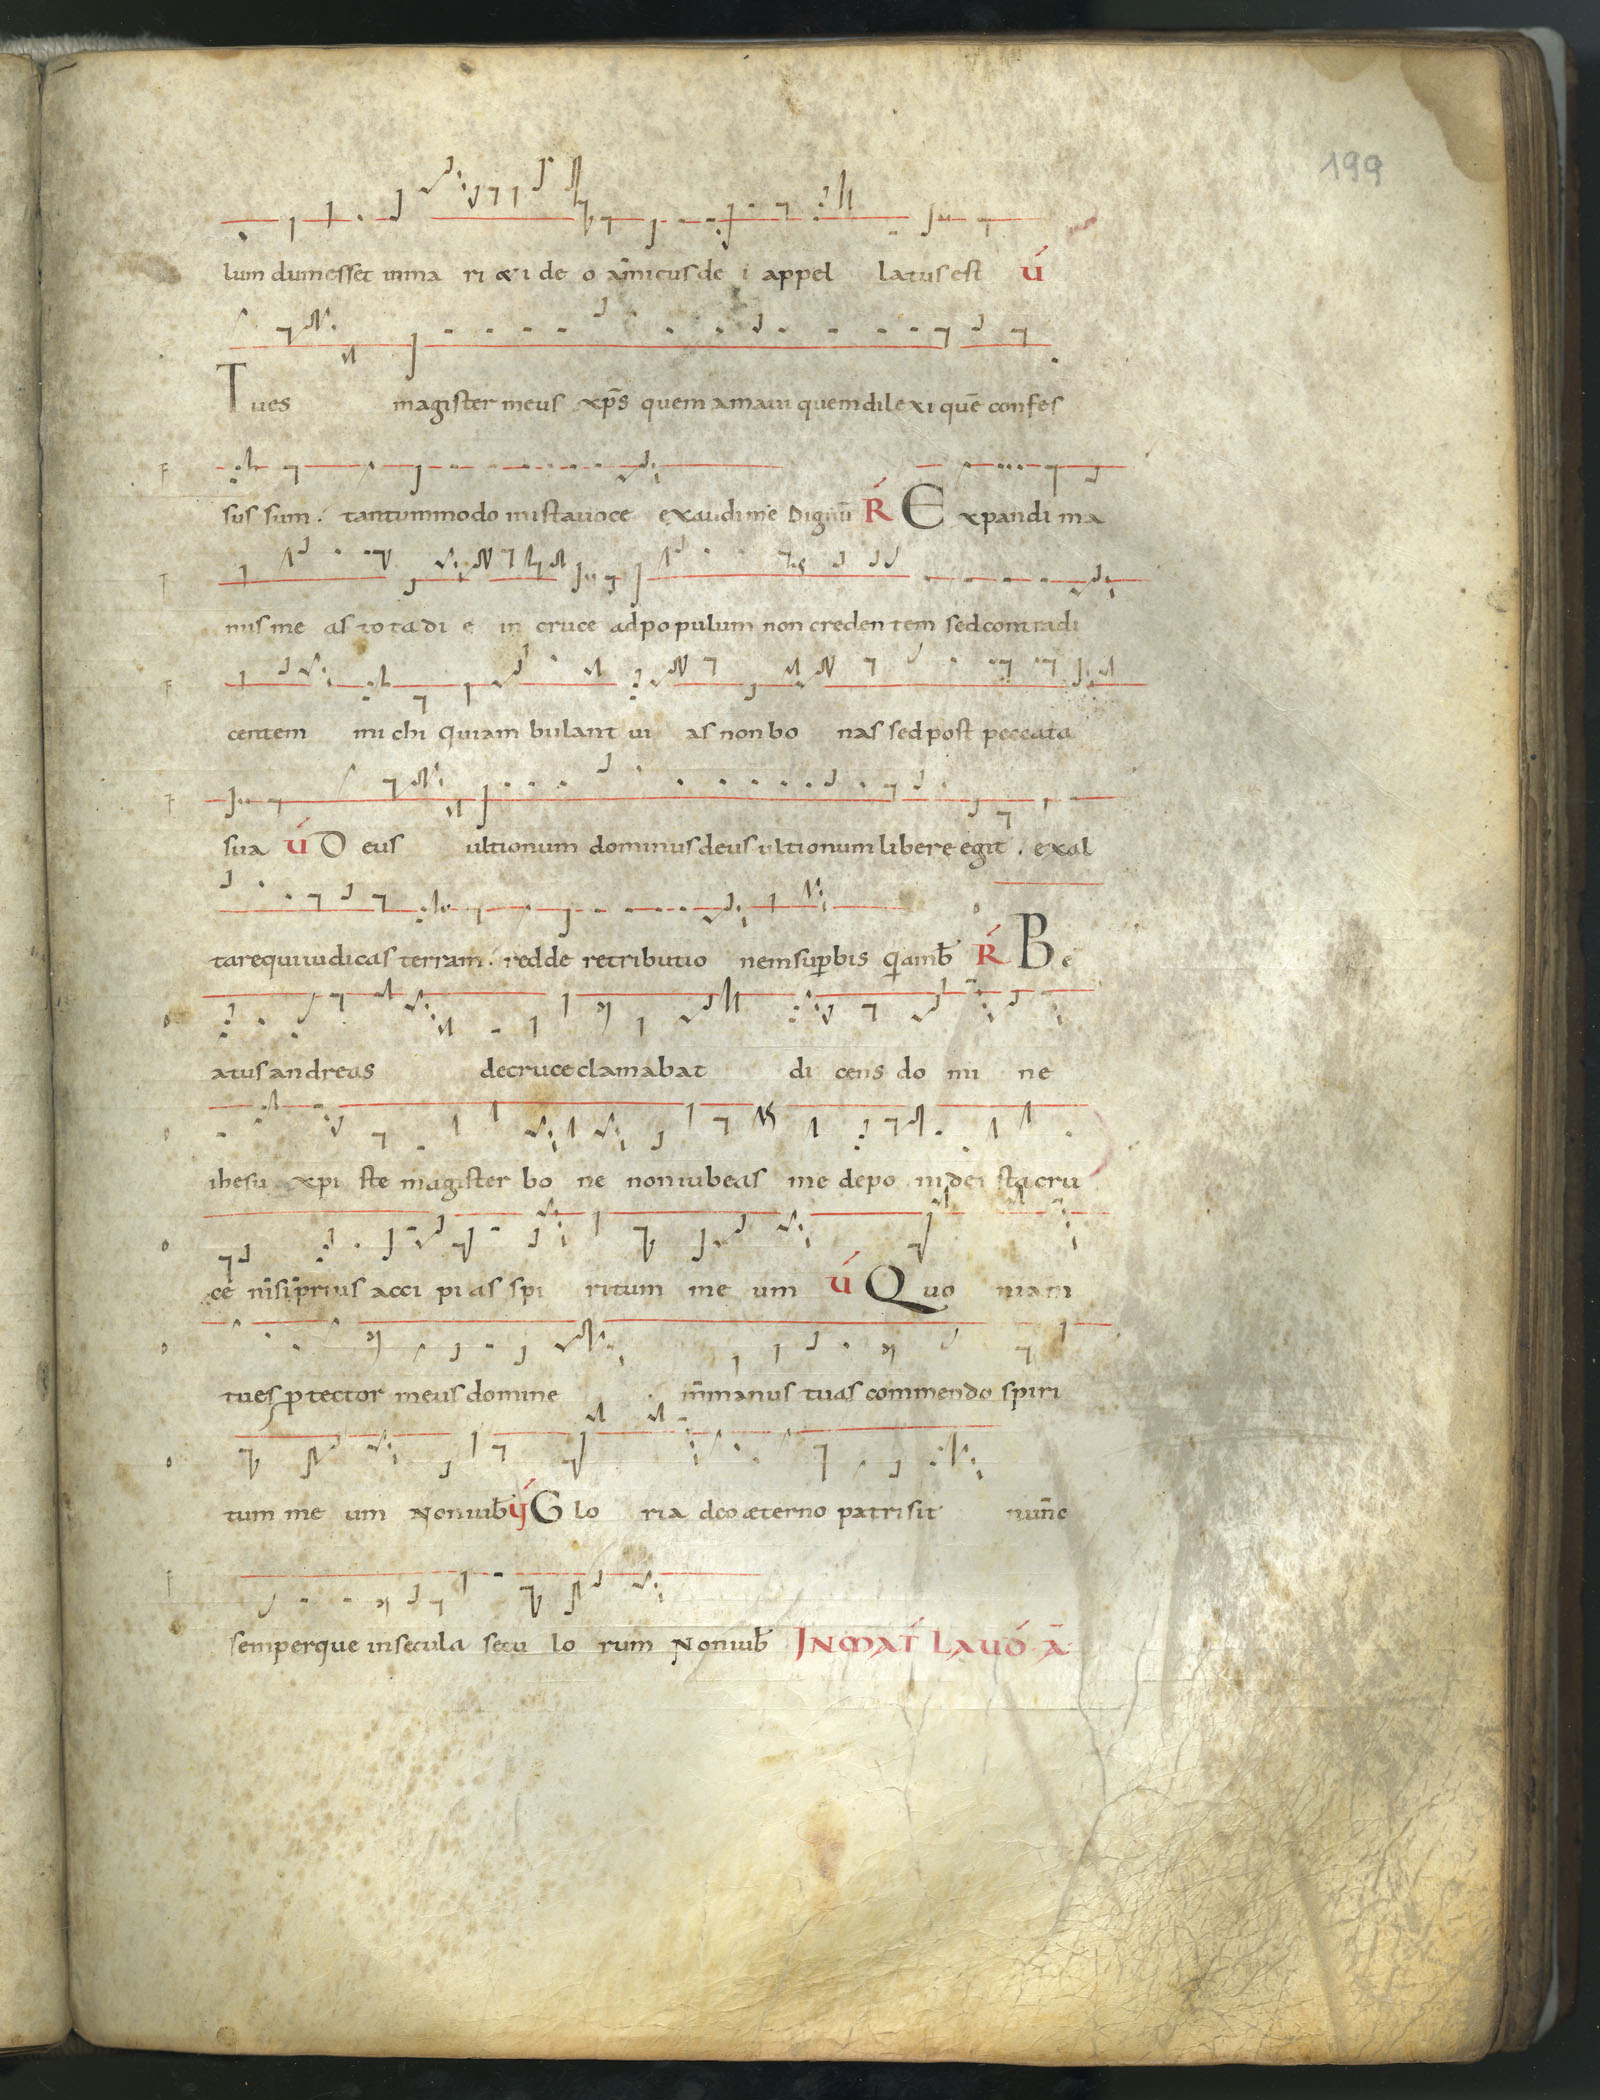 199
lum dum esset inma ri & i de o amicus de i appel latus est V
Tu es magister meus xp̄s quem amavi quem dile xi quē confes
F sus sum. tantummodo in ista voce exaudi me Dignū R̄ E xpandi ma
F nus me as to ta di e in cruce ad po pulum non creden tem sed contradi
F centem mi chi qui am bulant vi as non bo nas sed post peccata
F sua V D eus ultionum dominus deus ultionum libere egit. exal
tare qui iudicas terram. redde retributio nem supbis Qi amb̄ R̄ B e
D atus andreas de cruce clamabat di cens do mi ne
D ihesu xpi ste magister bo ne non iubeas me depo ni de i sta cru
D ce nisi prius acci pi as spi ritum me um V Q uo niam
D tu es ptector meus domine in manus tuas commendo spiri
D tum me um Non iub̄ V G lo ria deo æterno patri sit nunc
F semperque in secula secu lo rum Non iub̄ IN MAT̄ LAVD̄ A̅